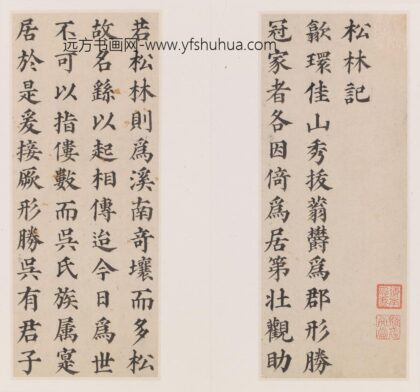 松林記
歙環佳山秀拔蓊欝爲郡形勝
冠家者各因倚爲居第壯觀助
若松林則爲溪南奇壤而多松
故名繇以起相傳迨今日爲世
不可以指僂數而吳氏族属寔
居於是爰接厥形勝吳有君子
远方书画网-www.yfshuhua.com